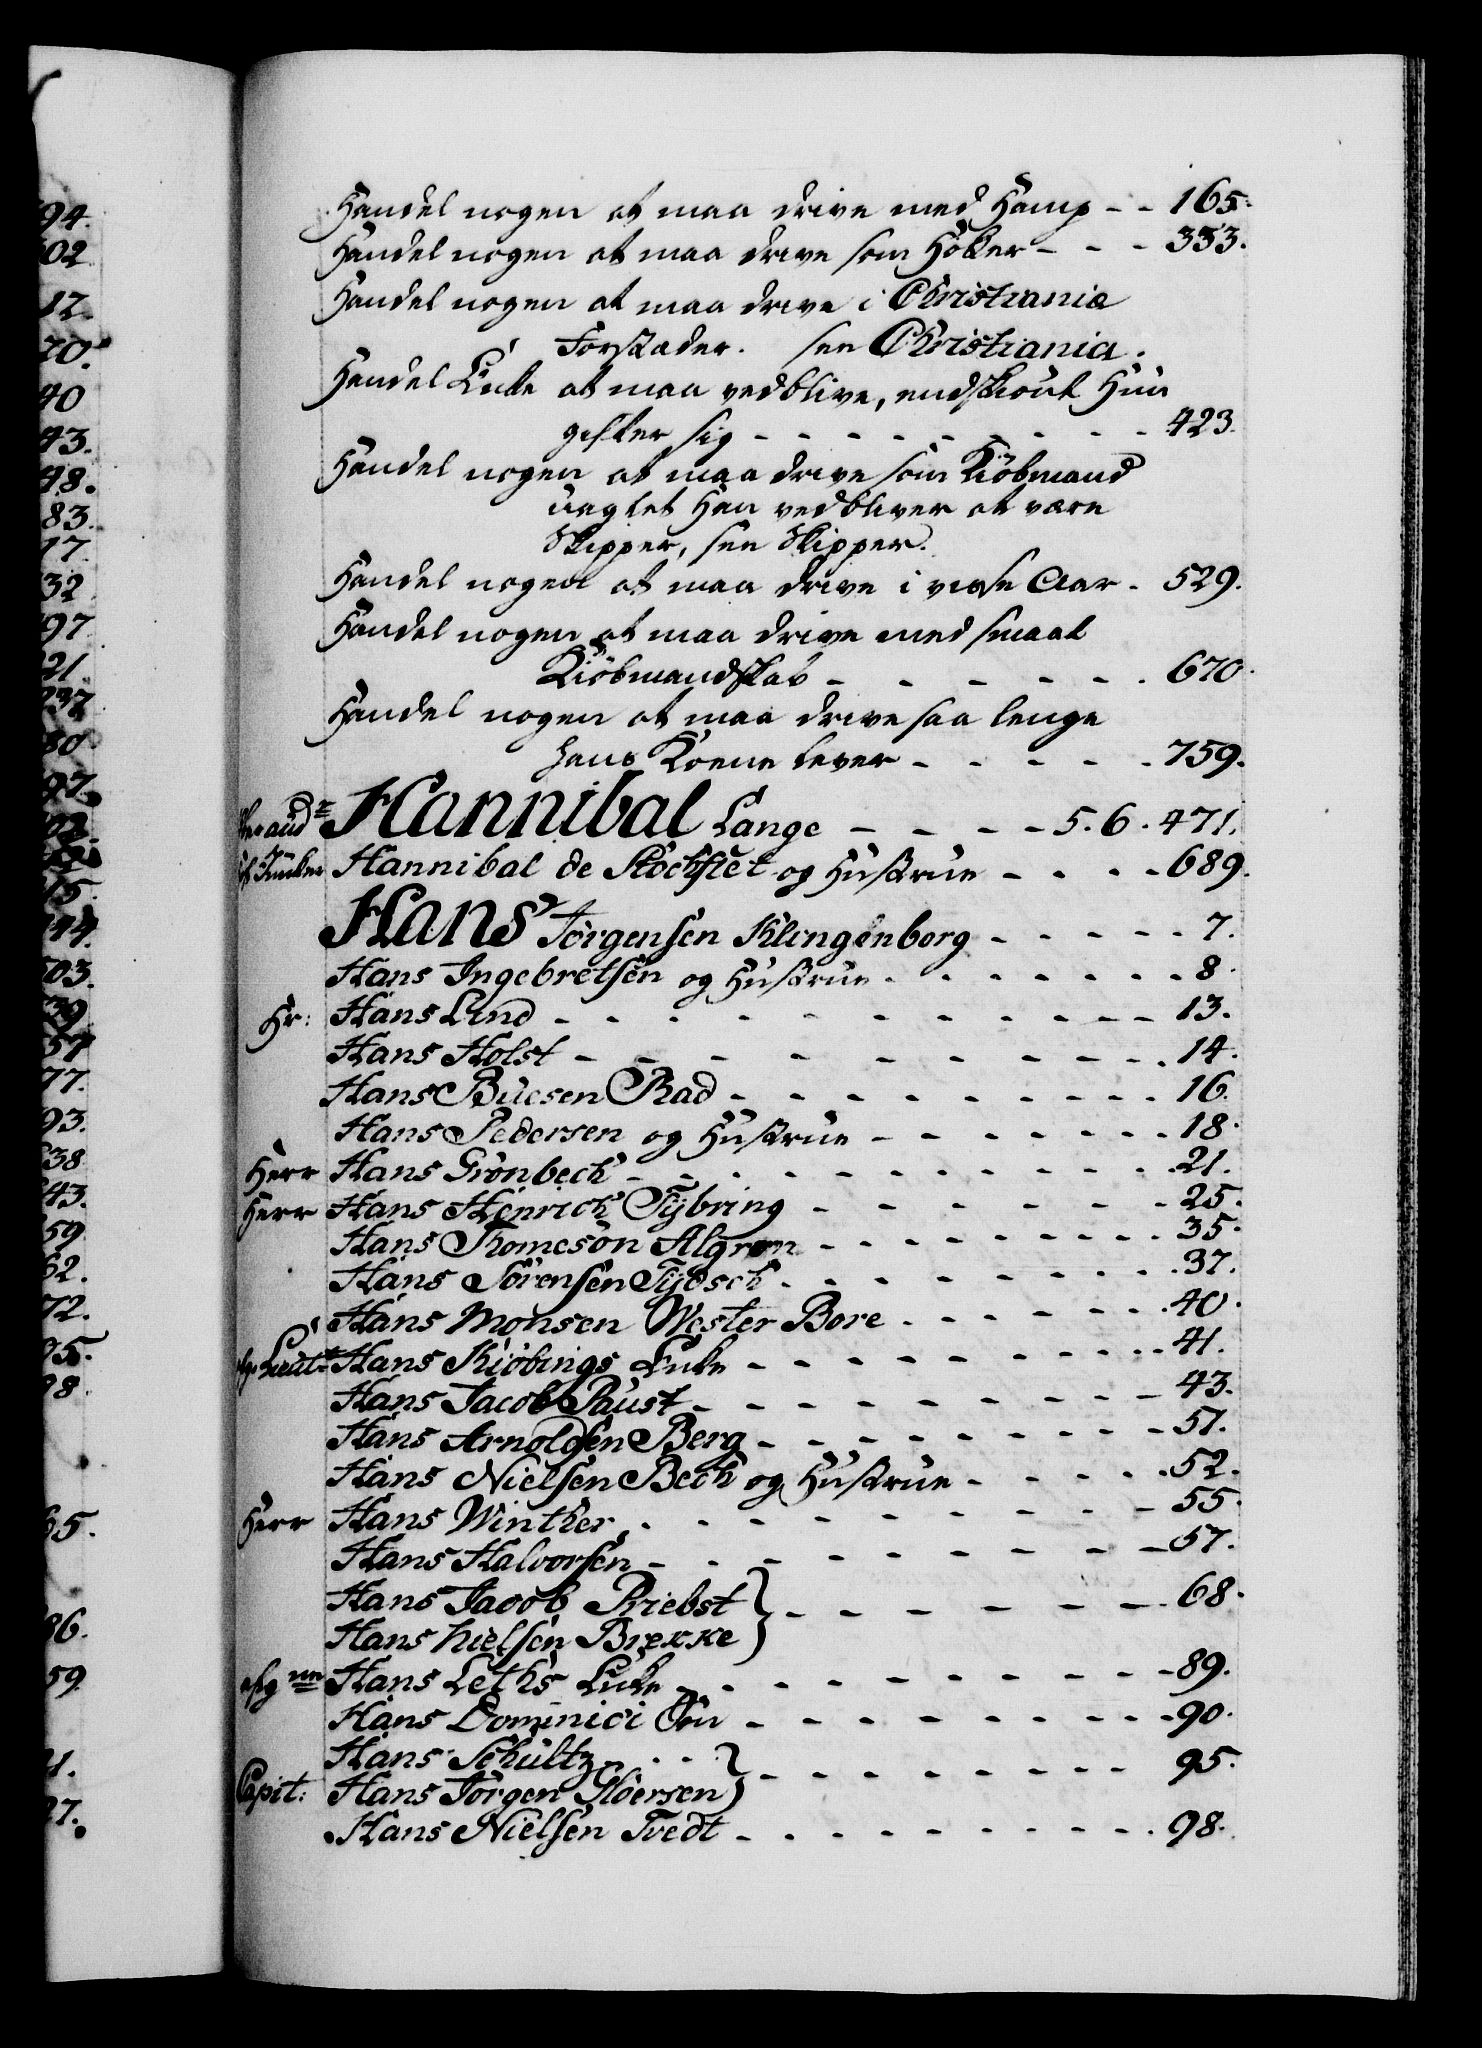 Handel nogen at maa drive med Hamp - - 165.
Handel nogen at maa drive som Höker - - - 333.
Handel nogen at maa drive i Christiania
Forstæder. see Christiania.
Handel Enke at maa vedblive, endskiönt Hun
gifter sig - - - - - - - - - 423.
Handel nogen at maa drive som Kiöbmand
uagtet Han vedbliver at være
Skipper, see Skipper.
Handel nogen at maa drive i visse Aar - 529.
Handel nogen at maa drive med smaat
Kiöbmandskab - - - - - - 670.
Handel nogen at maa drive saa lenge
hans Kone lever - - - - - 759.
Hannibal Lange - - - - 5. 6. 471.
Junker Hannibal de Stöckflet og Hustrue - - - - 689.
Hans Jörgensen Klingenberg - - - - - 7.
Hans Ingebretsen og Hustrue - - - - - - - 8.
Hr: Hans Lind - - - - - - - - - - - 13.
Hans Holst - - - - - - - - - - 14.
Hans Buesen Rad - - - - - - - - - 16.
Hans Pedersen og Hustrue - - - - - - - 18.
Herr Hans Grönbech - - - - - - - - - - 21.
Herr Hans Henrich Tÿbring - - - - - - 25.
Hans Thomesön Algreen - - - - - - - - 35.
Hans Sörensen Tÿdsch - - - - - - - - 37.
Hans Monsen Wester Bore - - - - - - 40.
Lieut: Hans Kiöbings Enke - - - - - - - - - 41.
Hans Jacob Paust - - - - - - - - - 43.
Hans Arnoldsen Berg - - - - - - - - 51.
Hans Nielsen Bech og Hustrue - - - - - 52.
Herr Hans Winther - - - - - - - - - 55.
Hans Halvorsen - - - - - - - - - 57.
Hans Jacob Priebst } - - - - - - - 68.
Hans Nielsen Brekke
afg: Hans Leths Enke - - - - - - - - - 89.
Hans Dominici Sön - - - - - - - - - 90.
Hans Schultz - - - } - - - - - - - - - 95.
Capit: Hans Jörgen Stoersen
Hans Nielsen Tvedt - - - - - - - - - - 98.